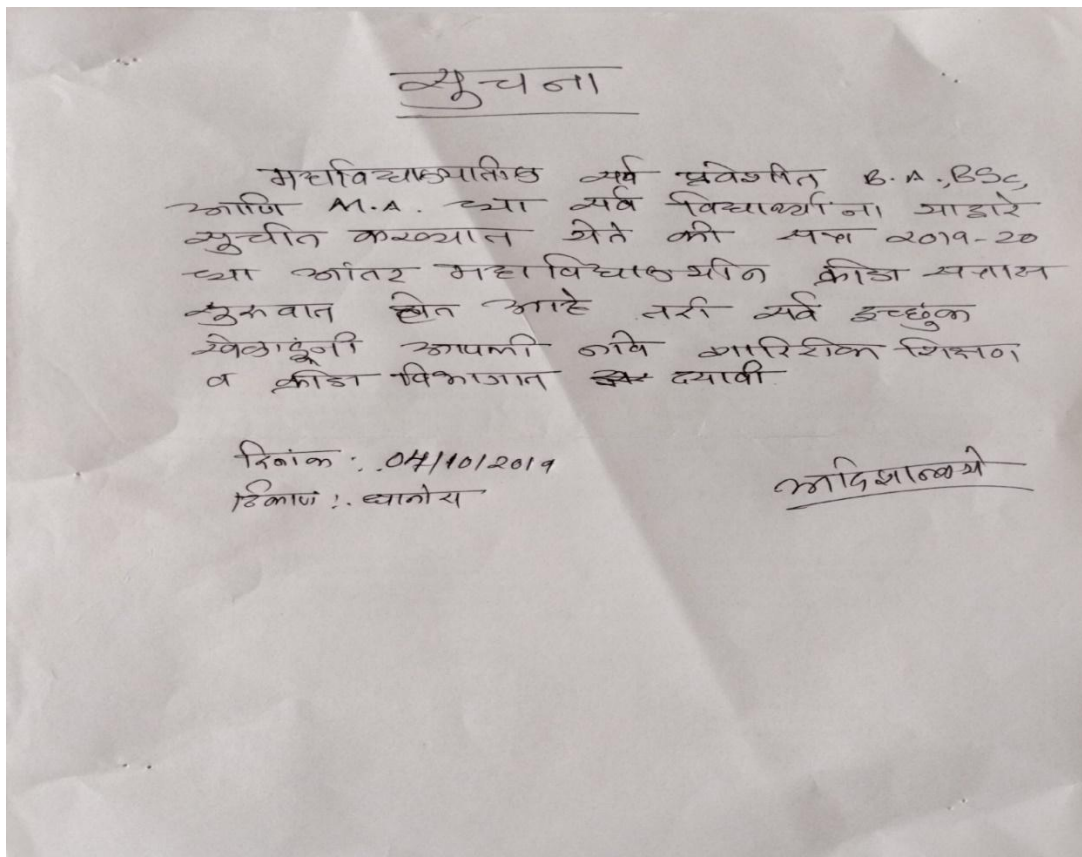 सूचना
महाविद्यालयातील सर्व प्रवेशीत B.A.,BSc,
आणि M.A. च्या सर्व विद्यार्थ्यांना याद्वारे
सुचीत करण्यात येते की सत्र २०१९-२०
च्या आंतर महाविद्यालयीन क्रीडा सत्रास
सुरुवात होत आहे तरी सर्व इच्छुक
खेळाडूंनी आपली नावे शारिरीक शिक्षण
व क्रीडा विभागात द्यावी
दिनांक :. 04/10/2019
ठिकाण :.